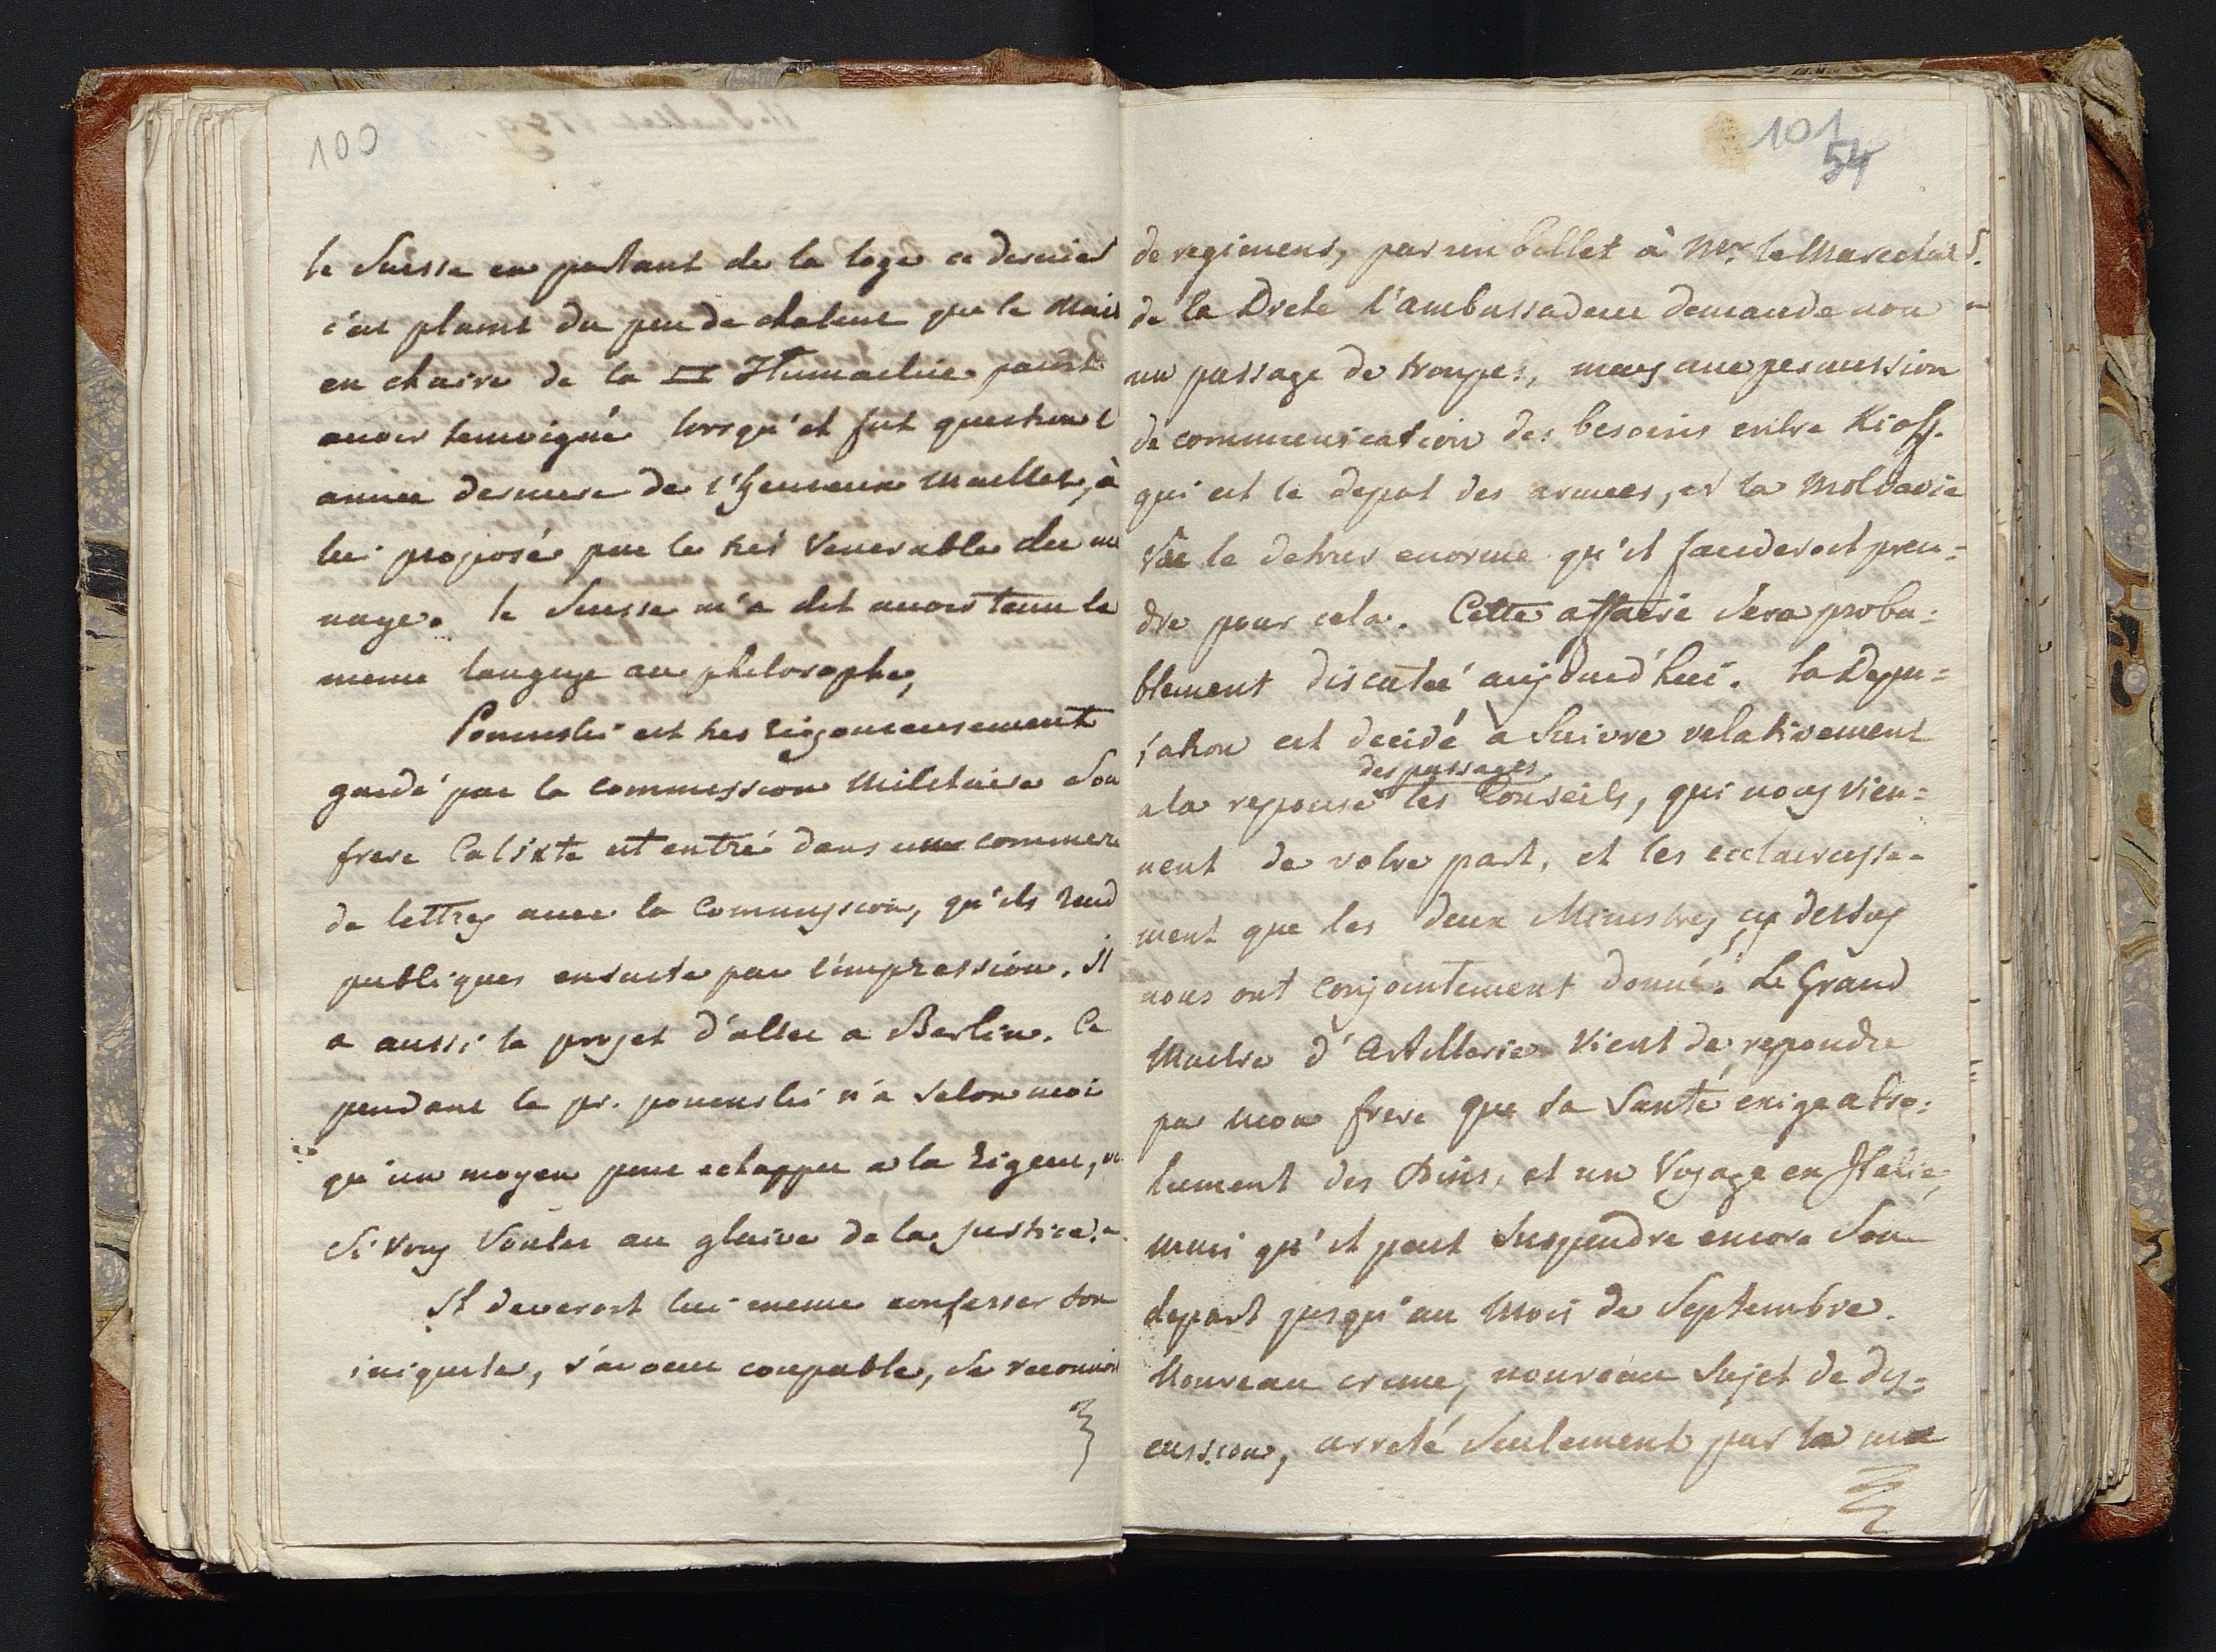 100
le Suisse en partant de la loge ce dernier
s'est plaint du peu de chaleur que le
en chaire de la Humaelie
avoir temoigné lorsqu'il fut question l
annee derniere de l'heureux Maillet, à
lui proposé par le tres Venerable du
nage. le Suisse m'a dit avoir tenu le
meme langage au philosophe,
Poninski est tres rigoureusement
gardé par la commission Militaire Son
frere Calixte est entré dans une commerce
de lettres avec la Commission, qu'ils rend
publiques ensuite par l'impression. Il
a aussi le projet d'aller a Berlin. Ce
pendant le pr. poninski n'a selon moi
qu'un moyen pour echapper a la rigeur, ou
Si vous voulez au glaive de la justice.
Il deveroit lui meme confesser son
iniquite, s'avouer coupable, se reconnoi
101
54
de regimens, par un billet à Mr. le Marechal
de la Diete l'ambassadeur demande non
un passage de troupes, mais une permission
de communication des besoins entre Kioff.
qui est le depot des armees, et la Moldavie
Vue le detour enorme qu'il fauderoit pren=
dre pour cela. Cette affaire sera proba=
blement discutée aujourd'hui. la Depu=
tation est decidé a suivre relativement
des passages
a la reponse les Conseils, qui nous vien=
nent de votre part, et les ecclaircisse=
ment que les deux Ministres cy dessus
nous ont conjointement donné. Le Grand
Maitre d'Artillerie vient de repondre
par mon frere que sa Santé exige abso=
lument des Bains, et un Voyage en Italie,
mais qu'il peut suspendre encore Son
depart jusqu'au Mois de Septembre.
Nouveau crime, nouveau sujet de dis=
cussion, arreté seulement par la